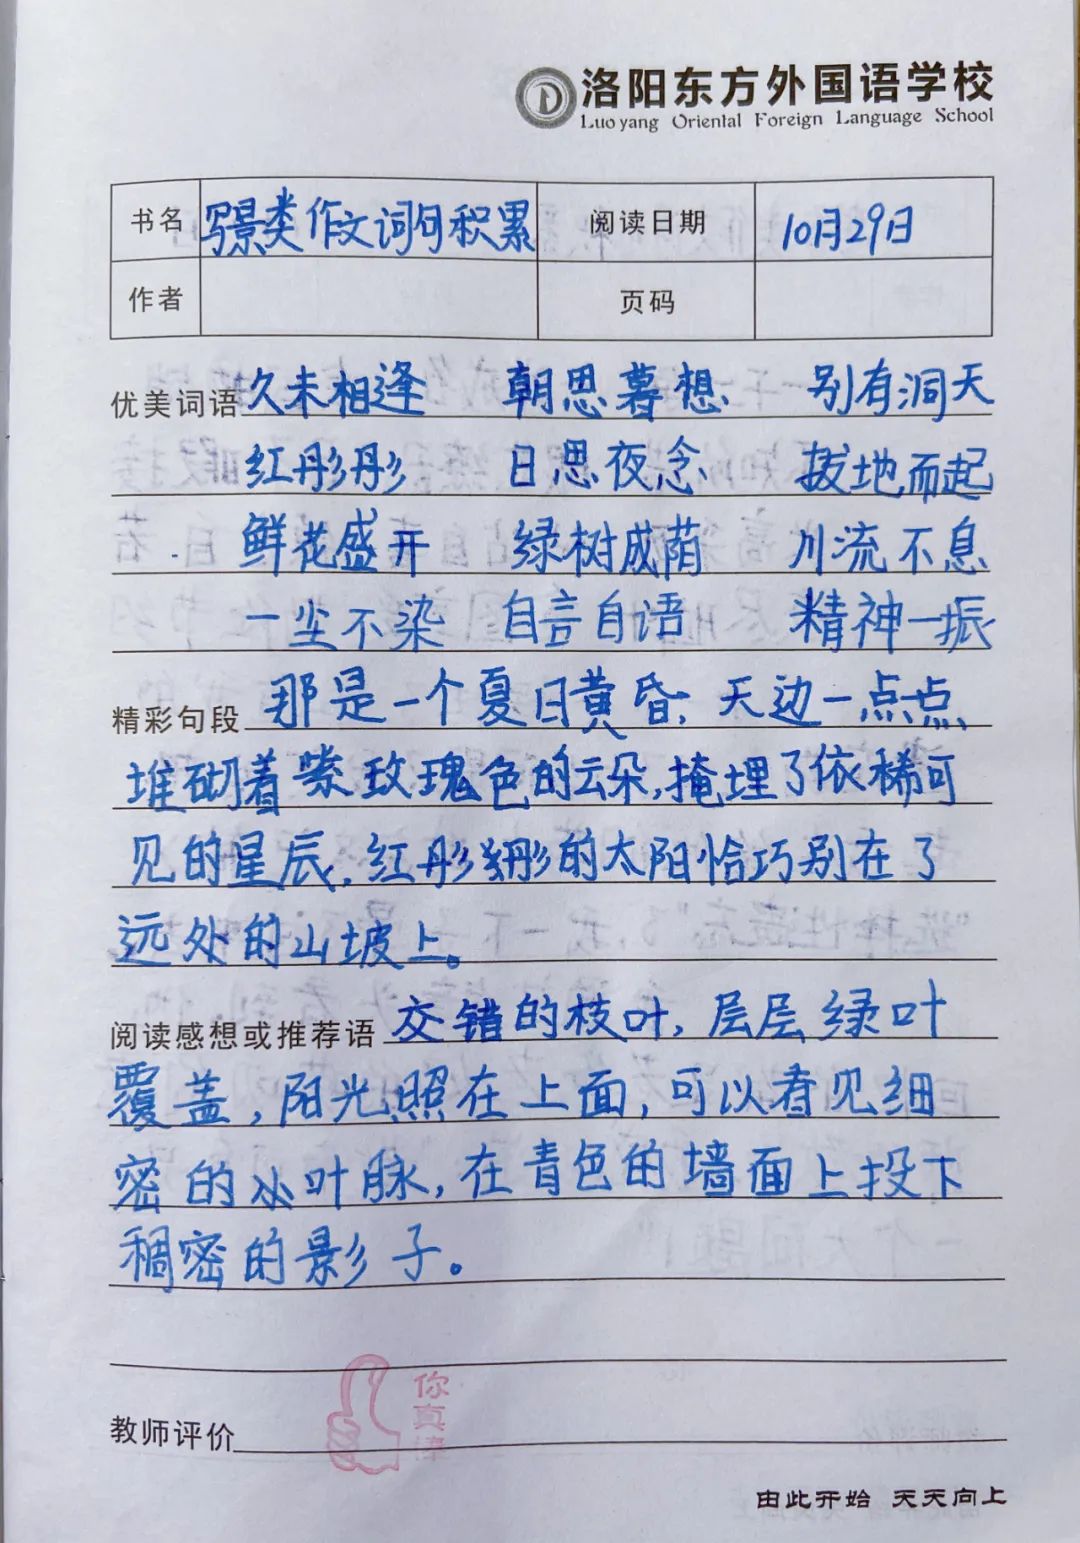 洛阳东方外国语学校
Luoyang Oriental Foreign Language School
书名 写景类作文词句积累 阅读日期 10月29日
作者 页码
优美词语 久未相逢 朝思暮想 别有洞天
红彤彤 日思夜念 拔地而起
鲜花盛开 绿树成荫 川流不息
一尘不染 自言自语 精神一振
精彩句段 那是一个夏日黄昏，天边一点点
堆砌着紫玫瑰色的云朵，掩埋了依稀可
见的星辰，红彤彤的太阳恰巧别在了
远处的山坡上。
阅读感想或推荐语 交错的枝叶，层层绿叶
覆盖，阳光照在上面，可以看见细
密的小叶脉，在青色的墙面上投下
稠密的影子。
你真棒
教师评价
由此开始 天天向上